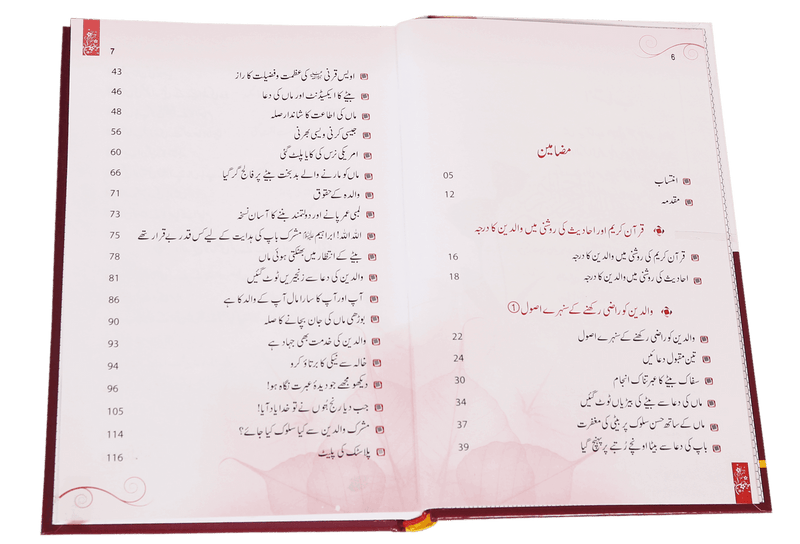 6
مضامین
انتساب 05
مقدمہ 12
قرآن کریم اور احادیث کی روشنی میں والدین کا درجہ
قرآن کریم کی روشنی میں والدین کا درجہ 16
احادیث کی روشنی میں والدین کا درجہ 18
والدین کو راضی رکھنے کے سنہرے اصول ①
والدین کو راضی رکھنے کے سنہرے اصول 22
تین مقبول دعائیں 24
سفاک بیٹے کا عبرتناک انجام 30
ماں کی دعا سے بیٹے کی بیڑیاں ٹوٹ گئیں 34
ماں کے ساتھ حسن سلوک پر بیٹی کی مغفرت 37
باپ کی دعا سے بیٹا اونچے رُتبے پر پہنچ گیا 39
7
اویس قرنی کی عظمت و فضیلت کا راز 43
بیٹے کا ایکسیڈنٹ اور ماں کی دعا 46
ماں کی اطاعت کا شاندار صلہ 48
جیسی کرنی ویسی بھرنی 56
امریکی نرس کی کایا پلٹ گئی 60
ماں کو مارنے والے بدبخت بیٹے پر فالج گر گیا 66
والدہ کے حقوق 71
لمبی عمر پانے اور دولتمند بننے کا آسان نسخہ 73
اللہ اللہ! ابراہیم مشرک باپ کی ہدایت کے لیے کس قدر بے قرار تھے 75
بیٹے کے انتظار میں بھٹکتی ہوئی ماں 78
والدین کی دعا سے زنجیریں ٹوٹ گئیں 81
آپ اور آپ کا سارا مال آپ کے والد کا ہے 86
بوڑھی ماں کی جان بچانے کا صلہ 90
والدین کی خدمت بھی جہاد ہے 93
خالہ سے نیکی کا برتاؤ کرو 94
دیکھو مجھے جو دیدۂ عبرت نگاہ ہو! 96
جب دیا رنج بُتوں نے تو خدا یاد آیا! 105
مشرک والدین سے کیا سلوک کیا جائے؟ 114
پلاسٹک کی پلیٹ 116